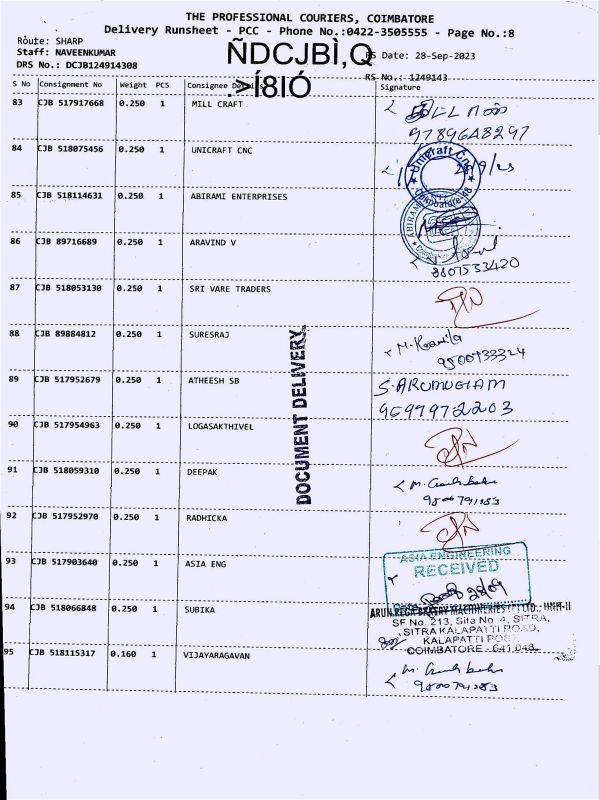 THE PROFESSIONAL COURIERS, COIMBATORE
Delivery Runsheet - PCC - Phone No.:0422-3505555 - Page No.:8
Route: SHARP
Staff: NAVEENKUMAR
ÑDCJBÌ,Q
RS Date: 28-Sep-2023
DRS No.: DCJB124914308
.>Í8IÓ
RS No.: 1249143
S No Consignment No Weight PCS Consignee Details Signature
83 CJB 517917668 0.250 1 MILL CRAFT
9789648297
84 CJB 518075456 0.250 1 UNICRAFT CNC
Unicraft Cnc
Coimbatore-48
85 CJB 518114631 0.250 1 ABIRAMI ENTERPRISES
ABIRAMI
86 CJB 89716689 0.250 1 ARAVIND V
8807533420
87 CJB 518053130 0.250 1 SRI VARE TRADERS
88 CJB 89884812 0.250 1 SURESRAJ
9500933324
DOCUMENT DELIVERY
89 CJB 517952679 0.250 1 ATHEESH SB
S.ARUMUGAM
9699972203
90 CJB 517954963 0.250 1 LOGASAKTHIVEL
91 CJB 518059310 0.250 1 DEEPAK
92 CJB 517952970 0.250 1 RADHICKA
93 CJB 517903640 0.250 1 ASIA ENG
ASIA ENGINEERING
RECEIVED
28/09
94 CJB 518066848 0.250 1 SUBIKA
ARUN REGA BAKERY MACHINERIES (P) LTD., UNIT-II
SF No. 213, Site No. 4, SITRA,
SITRA KALAPATTI ROAD,
KALAPATTI POST
COIMBATORE - 641 048.
95 CJB 518115317 0.160 1 VIJAYARAGAVAN